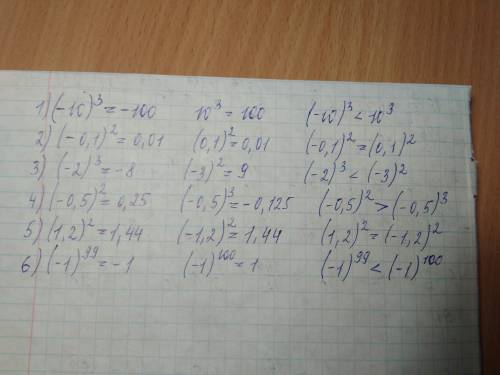 1) (-10)³ = -100 10³ = 100 (-10)³ < 10³
2) (-0,1)² = 0,01 (0,1)² = 0,01 (-0,1)² = (0,1)²
3) (-2)³ = -8 (-3)² = 9 (-2)³ < (-3)²
4) (-0,5)² = 0,25 (-0,5)³ = -0,125 (-0,5)² > (-0,5)³
5) (1,2)² = 1,44 (-1,2)² = 1,44 (1,2)² = (-1,2)²
6) (-1)⁹⁹ = -1 (-1)¹⁰⁰ = 1 (-1)⁹⁹ < (-1)¹⁰⁰